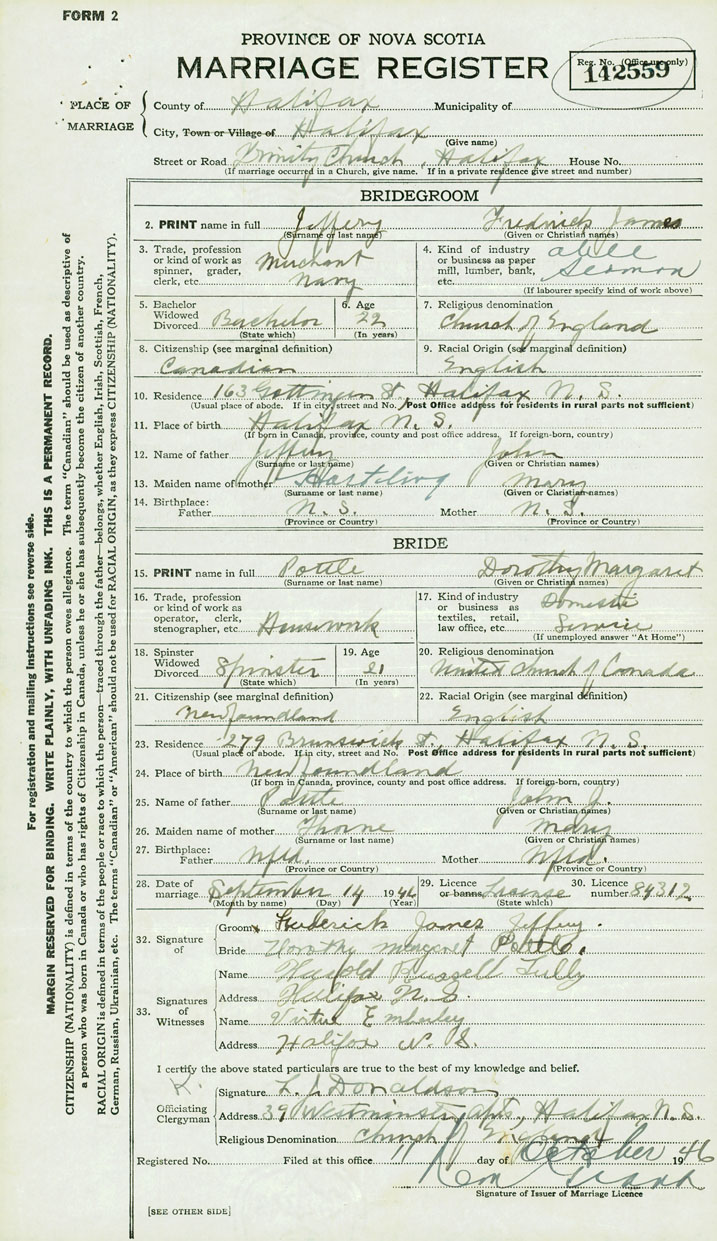 FORM 2
PROVINCE OF NOVA SCOTIA
MARRIAGE REGISTER
Reg. No. (Office use only)
142559
PLACE OF MARRIAGE
County of Halifax Municipality of
City, Town or Village of Halifax
(Give name)
Street or Road Trinity Church, Halifax House No.
(If marriage occurred in a Church, give name. If in a private residence give street and number)
BRIDEGROOM
2. PRINT name in full Jeffery Fredrick James
(Surname or last name) (Given or Christian names)
3. Trade, profession or kind of work as spinner, grader, clerk, etc. Merchant Navy
4. Kind of industry or business as paper mill, lumber, bank, etc. able Seaman
(If labourer specify kind of work above)
5. Bachelor Widowed Divorced Bachelor
(State which)
6. Age 22
(In years)
7. Religious denomination
Church of England
8. Citizenship (see marginal definition)
Canadian
9. Racial Origin (see marginal definition)
English
10. Residence 163 Gottingen St. Halifax N. S.
(Usual place of abode. If in city, street and No. Post Office address for residents in rural parts not sufficient)
11. Place of birth Halifax N. S.
(If born in Canada, province, county and post office address. If foreign-born, country)
12. Name of father Jeffery John
(Surname or last name) (Given or Christian names)
13. Maiden name of mother Hartling Mary
(Surname or last name) (Given or Christian names)
14. Birthplace:
Father N. S. Mother N. S.
(Province or Country) (Province or Country)
BRIDE
15. PRINT name in full Pottle Dorothy Margaret
(Surname or last name) (Given or Christian names)
16. Trade, profession or kind of work as operator, clerk, stenographer, etc. Housework
17. Kind of industry or business as textiles, retail, law office, etc. Domestic Service
(If unemployed answer "At Home")
18. Spinster Widowed Divorced Spinster
(State which)
19. Age 21
(In years)
20. Religious denomination
United Church of Canada
21. Citizenship (see marginal definition)
Newfoundland
22. Racial Origin (see marginal definition)
English
23. Residence 279 Brunswick St. Halifax N. S.
(Usual place of abode. If in city, street and No. Post Office address for residents in rural parts not sufficient)
24. Place of birth Newfoundland
(If born in Canada, province, county and post office address. If foreign-born, country)
25. Name of father Pottle John J.
(Surname or last name) (Given or Christian names)
26. Maiden name of mother Thorne Mary
(Surname or last name) (Given or Christian names)
27. Birthplace:
Father Nfld. Mother Nfld.
(Province or Country) (Province or Country)
28. Date of marriage September 14 1946
(Month by name) (Day) (Year)
29. Licence or banns License
(State which)
30. Licence number 84312
32. Signature of
Groom Frederick James Jeffery.
Bride Dorothy Margaret Pottle.
33. Signatures of Witnesses
Name Russell
Address Halifax N. S.
Name Virtue Emberley
Address Halifax N. S.
I certify the above stated particulars are true to the best of my knowledge and belief.
Officiating Clergyman
Signature L. J. Donaldson
Address 39 Westminster Apts., Halifax N. S.
Religious Denomination Church of England
Registered No. Filed at this office 11 day of October 1946
Signature of Issuer of Marriage Licence
[SEE OTHER SIDE]
For registration and mailing instructions see reverse side.
MARGIN RESERVED FOR BINDING. WRITE PLAINLY, WITH UNFADING INK. THIS IS A PERMANENT RECORD.
CITIZENSHIP (NATIONALITY) is defined in terms of the country to which the person owes allegiance. The term "Canadian" should be used as descriptive of
a person who was born in Canada or who has rights of Citizenship in Canada, unless he or she has subsequently become the citizen of another country.
RACIAL ORIGIN is defined in terms of the people or race to which the person—traced through the father—belongs, whether English, Irish, Scottish, French,
German, Russian, Ukrainian, etc. The terms "Canadian" or "American" should not be used for RACIAL ORIGIN, as they express CITIZENSHIP (NATIONALITY).